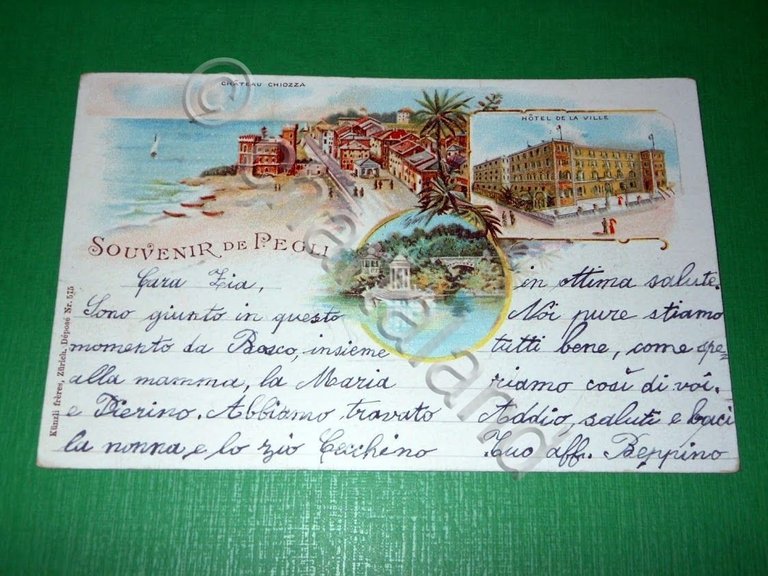 CHÂTEAU CHIOZZA
HÔTEL DE LA VILLE
SOUVENIR DE PEGLI
Cara Zia,
Sono giunto in questo
momento da Bosco, insieme
alla mamma, la Maria
e Pierino. Abbiamo travato
la nonna e lo zio Cecchino
in ottima salute.
Nôi pure stiamo
tutti bene, come spe=
riamo così di voi.
Addio, saluti e baci
Tuo aff. Beppino
Künzli frères, Zürich. Déposé Nr. 515
©